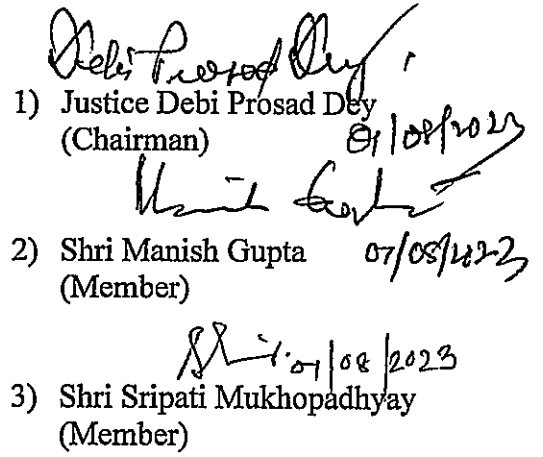 Debi Prosad Dey.
1) Justice Debi Prosad Dey
(Chairman)
01/08/2023
Manish Gupta
2) Shri Manish Gupta 07/08/2023
(Member)
01/08/2023
3) Shri Sripati Mukhopadhyay
(Member)